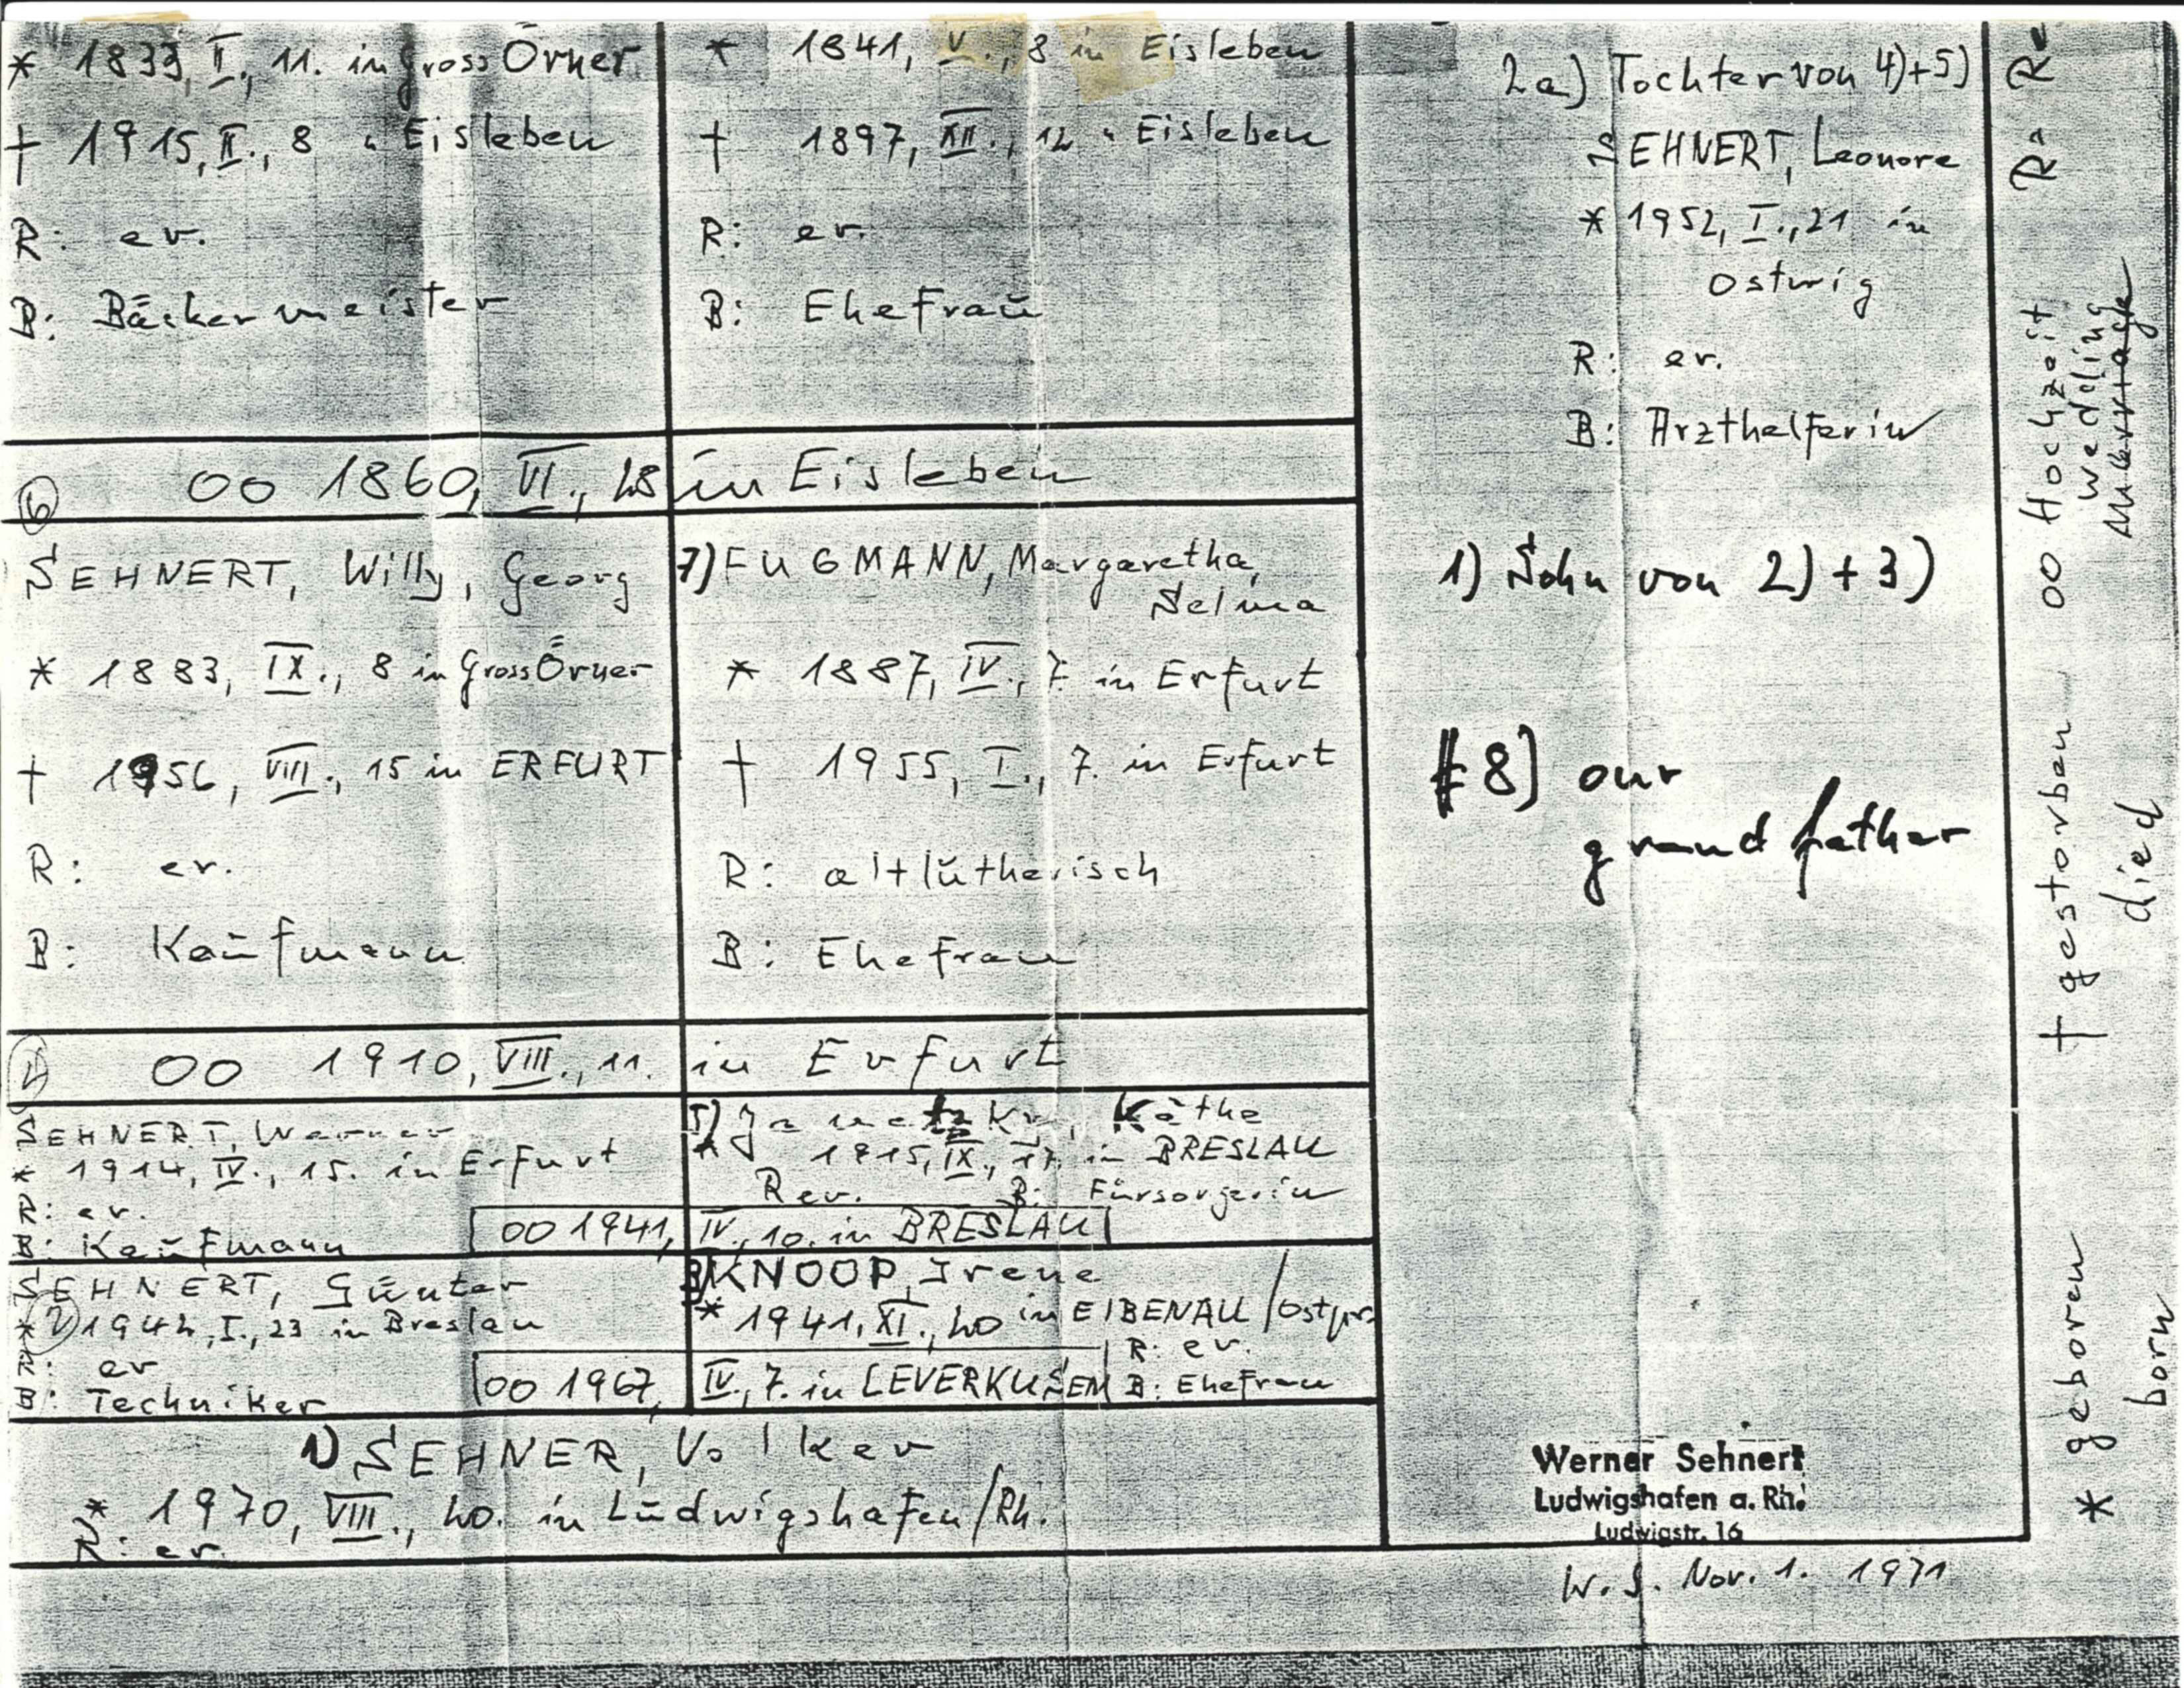 * 1833, II., 11. in Gross Örner
† 1915, II., 8 " Eisleben
R: ev.
B: Bäckermeister
* 1841, V., 8 in Eisleben
† 1897, XII., 12 " Eisleben
R: ev.
B: Ehefrau
6
oo 1860, VI., 28 in Eisleben
SEHNERT, Willy, Georg
* 1883, IX., 8 in Gross Örner
† 1956, VIII., 15 in ERFURT
R: ev.
B: Kaufmann
7) FUGMANN, Margaretha,
Selma
* 1887, IV., 7. in Erfurt
† 1955, I., 7. in Erfurt
R: altlutherisch
B: Ehefrau
4
oo 1910, VIII., 11. in Erfurt
SEHNERT, Werner
* 1914, IV., 15. in Erfurt
R: ev.
B: Kaufmann
5) Janetzky, Käthe
* 1915, IX., 17. in BRESLAU
R ev. B: Fürsorgerin
oo 1941, IV., 10. in BRESLAU
SEHNERT, Günter
* 2) 1942, I., 23 in Breslau
R: ev
B: Techniker
3) KNOOP, Irene
* 1941, XI., 20 in EIBENAU / Ostpr.
R: ev.
B: Ehefrau
oo 1967, IV., 7. in LEVERKUSEN
1) SEHNER, Volker
* 1970, VIII., 20. in Ludwigshafen/Rh.
R: ev.
2a) Tochter von 4)+5)
SEHNERT, Leonore
* 1952, I., 21 in
Ostwig
R: ev.
B: Arzthelferin
1) Sohn von 2) + 3)
#8) our
grandfather
Werner Sehnert
Ludwigshafen a. Rh.
Ludwigstr. 16
W. S. Nov. 1. 1971
* geboren † gestorben oo Hochzeit R= Re
born died wedding